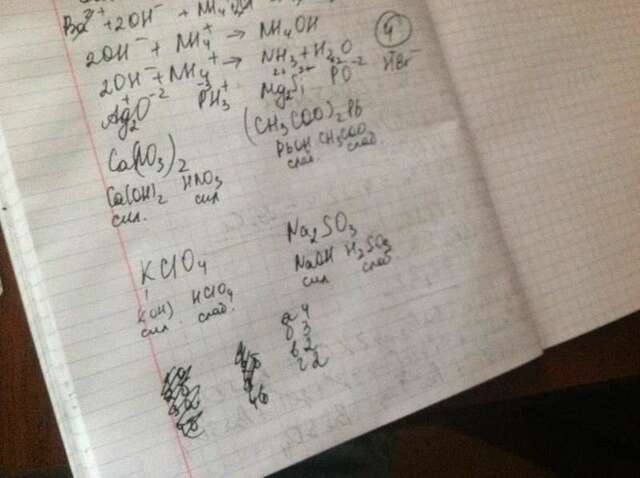 Ba²⁺ + 2OH⁻ + NH₄OH
2OH⁻ + NH₄⁺ → NH₄OH
4
2OH⁻ + NH₄⁺ → NH₃ + H₂O
Ag₂⁺O⁻² PH₃⁺ Mg₂Si PO⁻² HBr⁻
Ca(NO₃)₂ (CH₃COO)₂Pb
Ca(OH)₂ HNO₃ PbOH CH₃COO
сил. сил слаб. слаб.
KClO₄ Na₂SO₃
KOH HClO₄ NaOH H₂SO₃
сил слаб. сил слаб
а 4
б 3
в 2
г 2